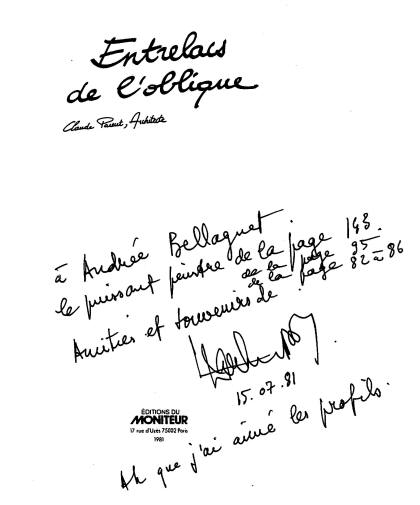 Entrelacs
de l'oblique
Claude Parent, Architecte
à Andrée Bellaguet
le puissant peintre de la page 143.
de la page 95
de la page 82 = 86
Amitiés et souvenirs de
15.07.81
ÉDITIONS DU
MONITEUR
17 rue d'Uzès 75002 Paris
1981
Ah que j'ai aimé les profils.